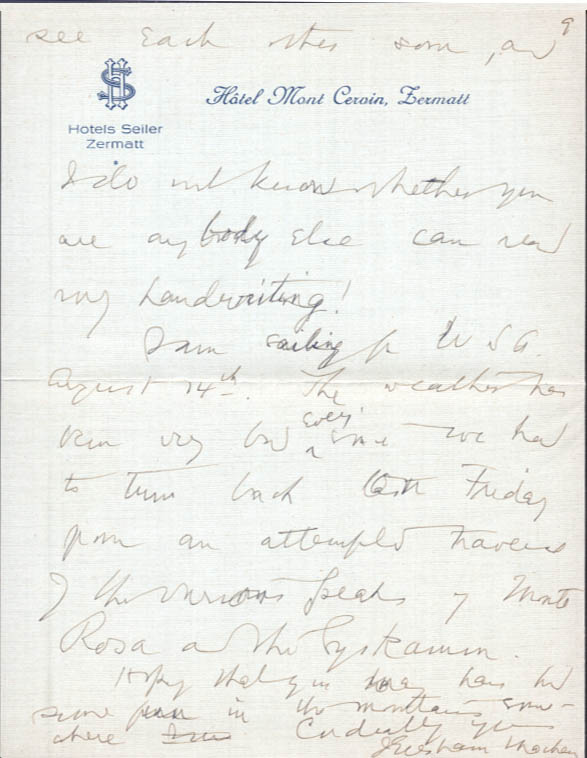 9
see each other soon, and
HS
Hôtel Mont Cervin, Zermatt
Hotels Seiler
Zermatt
I do not know whether you
are anybody else can read
my handwriting!
I am sailing for U S A.
August 14th. The weather has
been very bad ever since we had
to turn back last Friday
from an attempted traverse
of the various peaks of Monte
Rosa and the Lyskamm.
Hoping that you may have had
some fun in the mountains some-
where Cordially yours
J Monroe Thorington